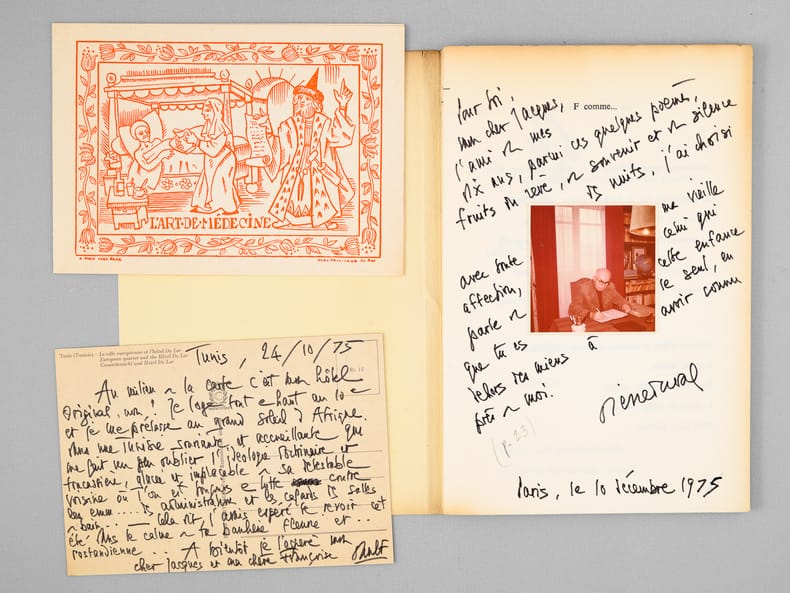 L'ART·DE·MÉDECINE
A PARIS CHEZ
F comme...
Pour toi,
mon cher Jacques,
l'ami de mes
dix ans, parmi ces quelques poèmes,
fruits du rêve, du souvenir et du silence
des nuits, j'ai choisi
avec toute
affection,
ma vieille
celui qui
parle de
cette enfance
que tu es
le seul, en
dehors des miens à
avoir connu
près de moi.
(p. 23)
Paris, le 10 décembre 1975
Tunis (Tunisie) - La ville européenne et l'hôtel Du Lac
European quarter and the Hôtel Du Lac
Tunis, 24/10/75
Au milieu de la carte c'est mon hôtel
Original, non! Je loge tout en haut au 10e
et je me prélasse au grand soleil d'Afrique
dans une Tunisie souriante et accueillante que
me fait un peu oublier l'idéologie
glacée et implacable de sa détestable
voisine où l'on est toujours en lutte contre
les administrations et les cafards des salles
de bain... Cela dit, j'avais espéré te revoir cet
été dans le calme de ta banlieue fleurie et...
rostandienne... A bientôt je l'espère mon
cher Jacques et ma chère Françoise